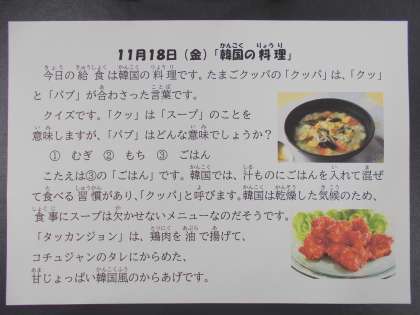 11月18日（金）「韓国の料理」
今日の給食は韓国の料理です。たまごクッパの「クッパ」は、「クッ」
と「パブ」が合わさった言葉です。
クイズです。「クッ」は「スープ」のことを
意味しますが、「パブ」はどんな意味でしょうか？
① むぎ ② もち ③ ごはん
こたえは③の「ごはん」です。韓国では、汁ものにごはんを入れて混ぜ
て食べる習慣があり、「クッパ」と呼びます。韓国は乾燥した気候のため、
食事にスープは欠かせないメニューなのだそうです。
「タッカンジョン」は、鶏肉を油で揚げて、
コチュジャンのタレにからめた、
甘じょっぱい韓国風のからあげです。